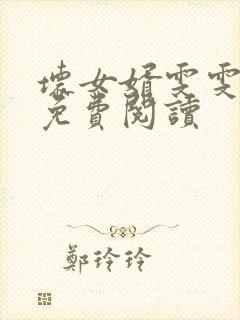 壞女婿雯雯
免費閱讀
鄭玲玲